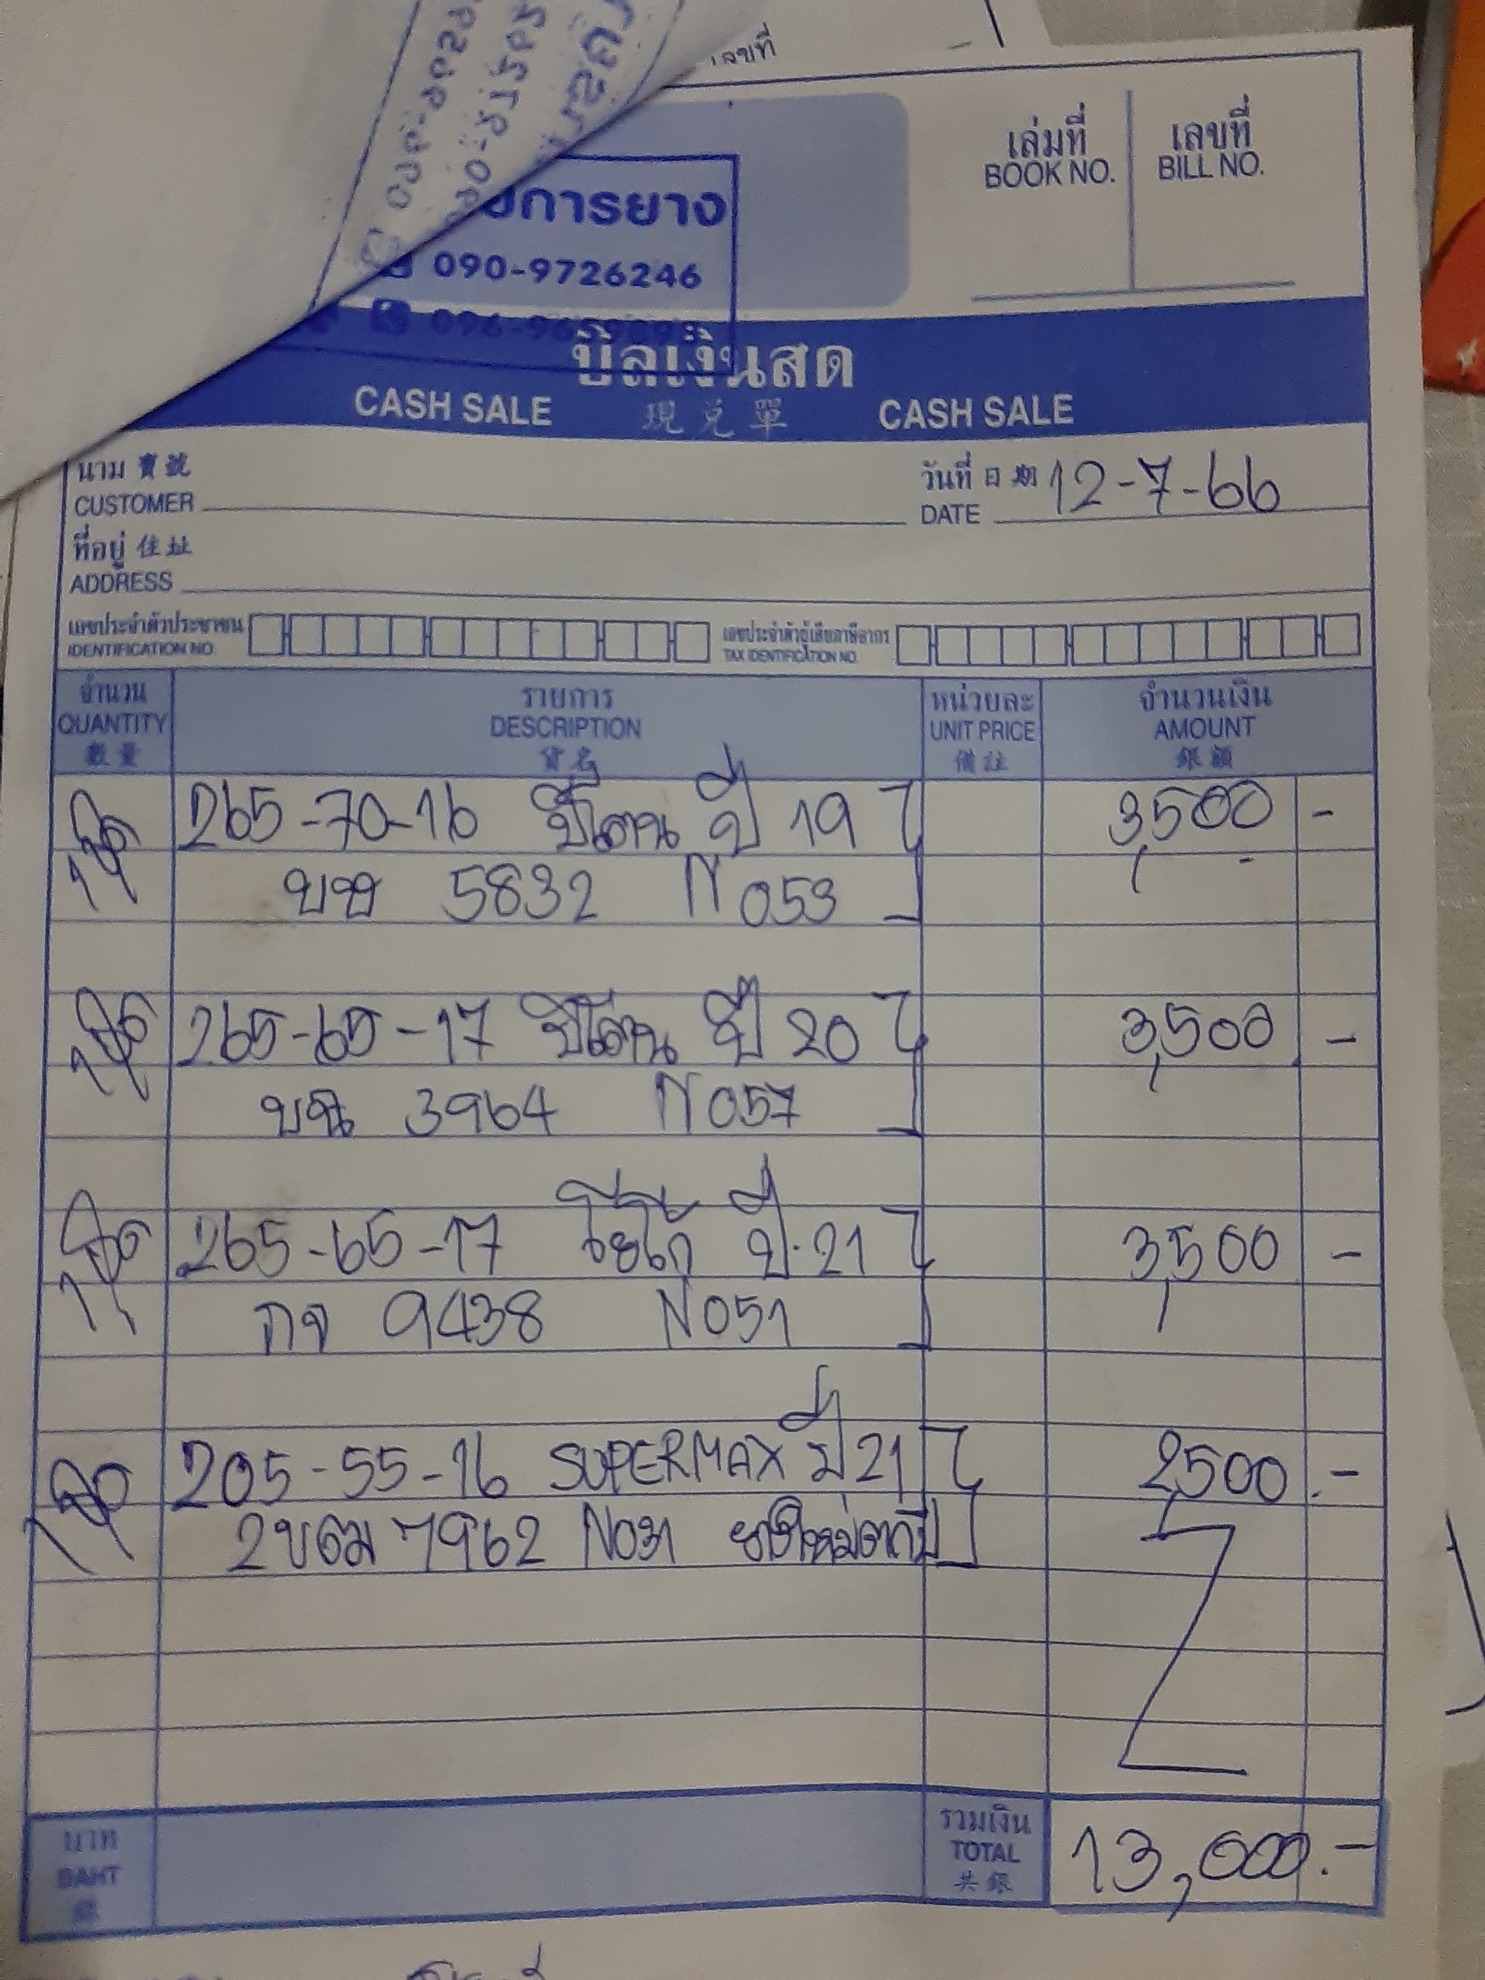 เลขที่
เล่มที่ เลขที่
BOOK NO. BILL NO.
การยาง
090-9726246
บิลเงินสด
CASH SALE 現兌單 CASH SALE
นาม 寶號 วันที่ 日期 12-7-66
CUSTOMER DATE
ที่อยู่ 住址
ADDRESS
เลขประจำตัวประชาชน เลขประจำตัวผู้เสียภาษีอากร
IDENTIFICATION NO. TAX IDENTIFICATION NO.
จำนวน รายการ หน่วยละ จำนวนเงิน
QUANTITY DESCRIPTION UNIT PRICE AMOUNT
數量 貨名 備註 銀額
1ชุด 265-70-16 ปี 19 3,500 -
5832 N053
1ชุด 265-65-17 ปี 20 3,500 -
3964 N057
1ชุด 265-65-17 ปี 21 3,500 -
กจ 9438 N051
1ชุด 205-55-16 SUPERMAX ปี 21 2,500 .-
2ขตม 7962 N031
บาท รวมเงิน
BAHT TOTAL 13,000.-
銀 共銀